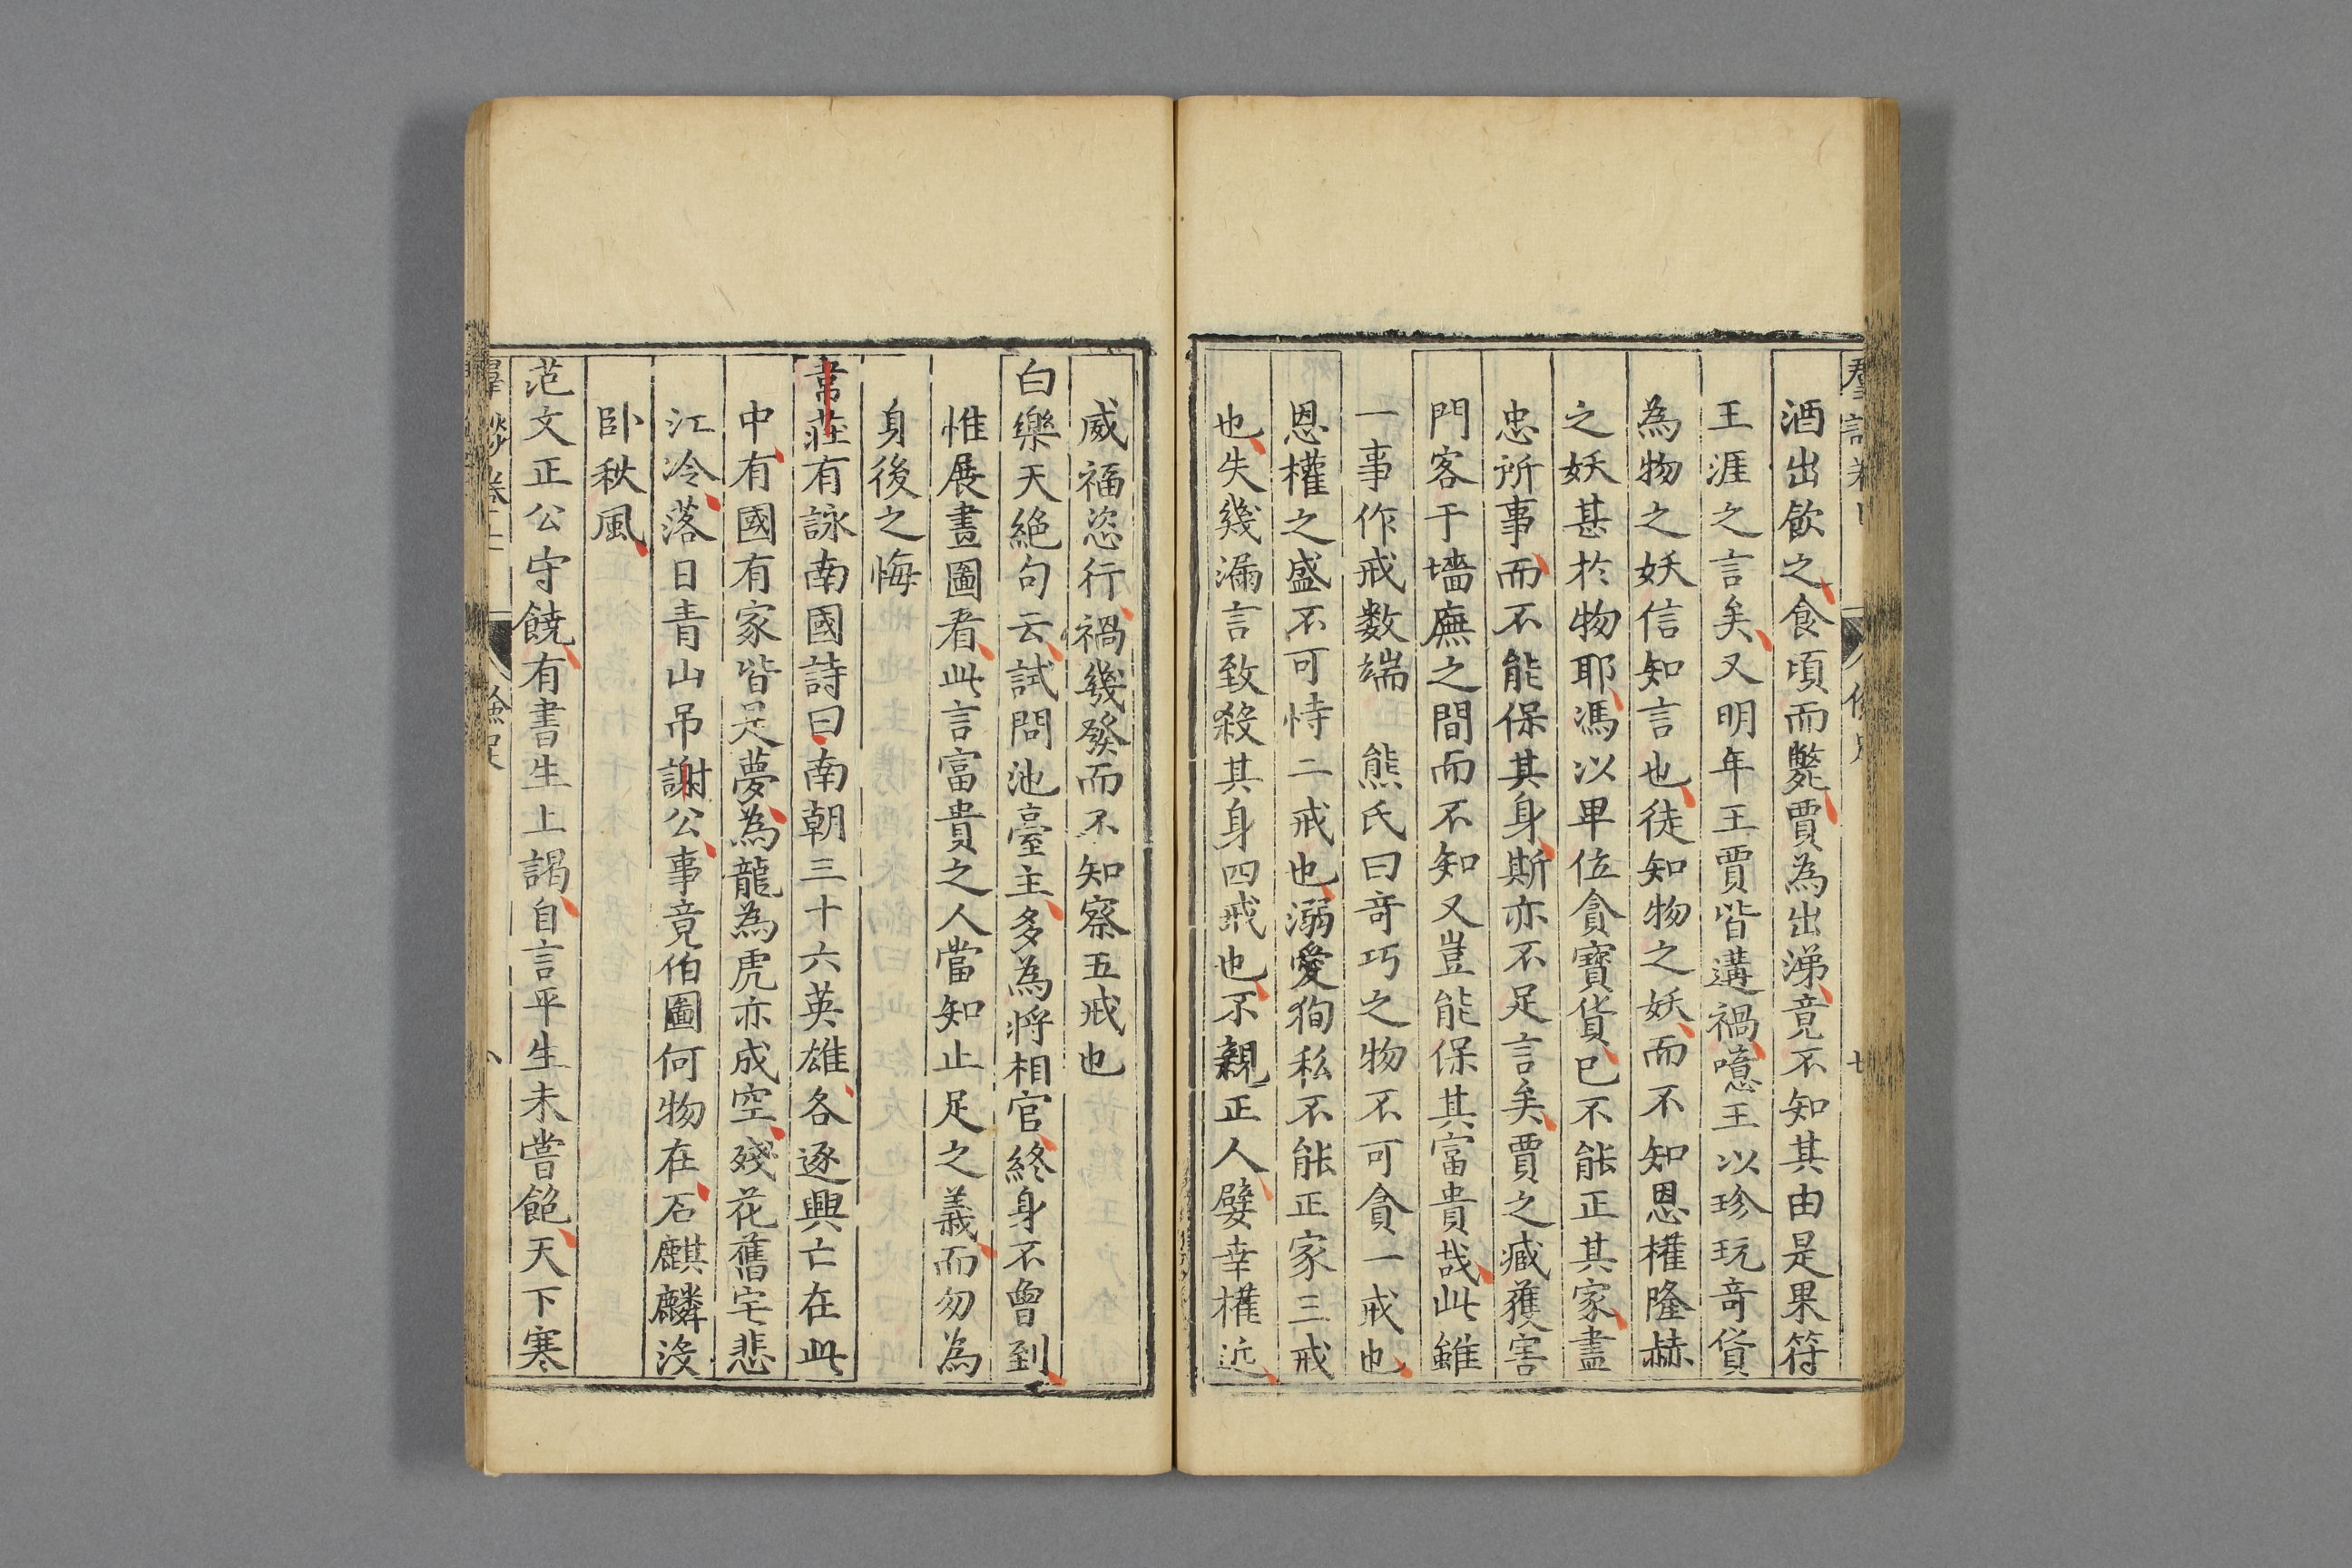 酒出飲之食頃而斃賈為出涕竟不知其由是果符
王涯之言矣又明年王賈皆遘禍噫王以珍玩奇貨
為物之妖信知言也徒知物之妖而不知恩權隆赫
之妖甚於物耶馮以卑位貪寶貨已不能正其家盡
忠所事而不能保其身斯亦不足言矣賈之臧獲害
門客于墻廡之間而不知又豈能保其富貴哉此雖
一事作戒数端 熊氏曰竒巧之物不可貪一戒也
恩權之盛不可恃二戒也溺愛狥私不能正家三戒
也失幾漏言致殺其身四戒也不親正人嬖幸權近
威福恣行禍幾發而不知察五戒也
白樂天絶句云試問池臺主多為將相官終身不曾到
惟展畫圖看此言富貴之人當知止足之義而勿為
身後之悔
韋莊有詠南國詩曰南朝三十六英雄各逐興亡在此
中有國有家皆是夢為龍為虎亦成空殘花舊宅悲
江冷落日青山吊謝公事竟伯圖何物在石麒麟沒
卧秋風
范文正公守饒有書生上謁自言平生未嘗飽天下寒